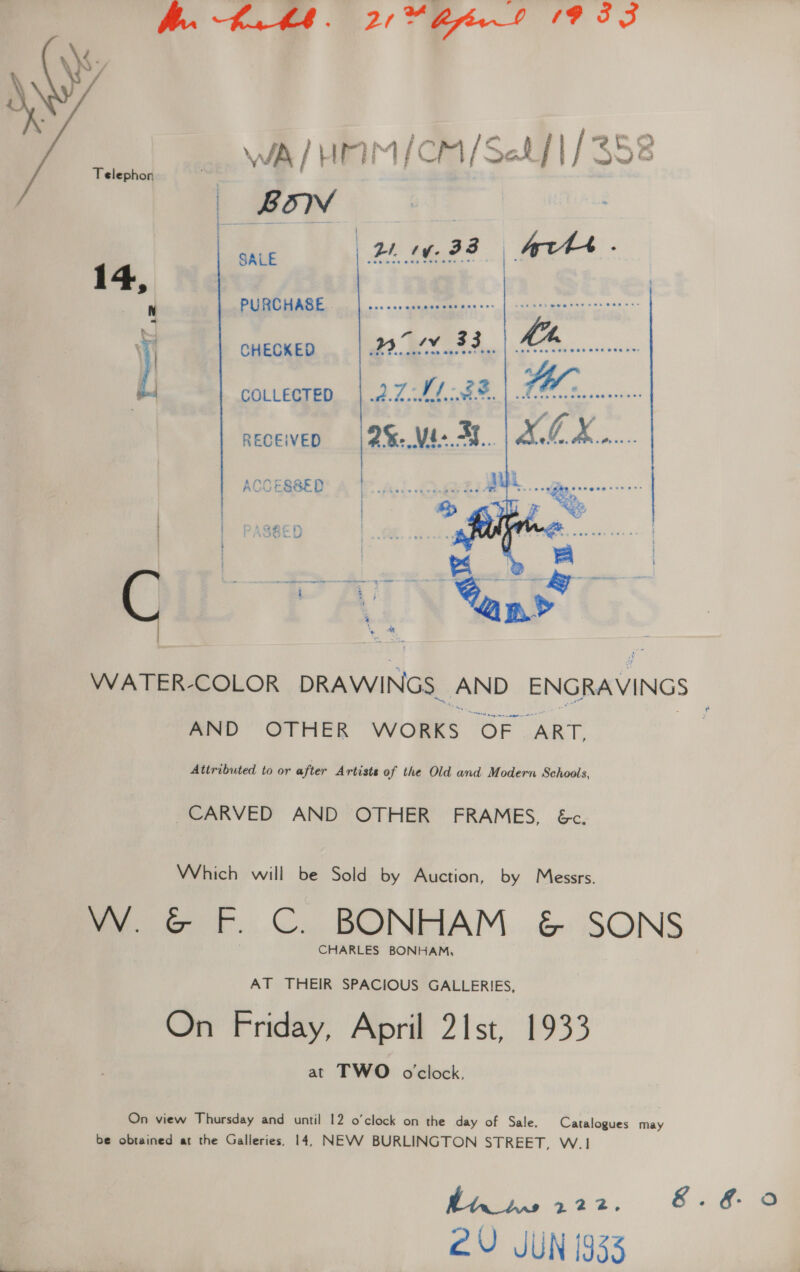 21st April 1933
WA/HMM/CM/Sal/1/358
Telephon
BON
SALE 21. IV. 33
14,
PURCHASE
N
CHECKED 33
COLLECTED 27. VI. 33
RECEIVED 28. VI. 33
ACCESSED
PASSED
OIL PAINTINGS
WATER-COLOR DRAWINGS AND ENGRAVINGS
AND OTHER WORKS OF ART,
Attributed to or after Artists of the Old and Modern Schools,
CARVED AND OTHER FRAMES, &c.
Which will be Sold by Auction, by Messrs.
W. & F. C. BONHAM & SONS
CHARLES BONHAM,
AT THEIR SPACIOUS GALLERIES,
On Friday, April 21st, 1933
at TWO o'clock.
On view Thursday and until 12 o'clock on the day of Sale. Catalogues may
be obtained at the Galleries, 14, NEW BURLINGTON STREET, W.1
222. 8. 8. 0
20 JUN 1933